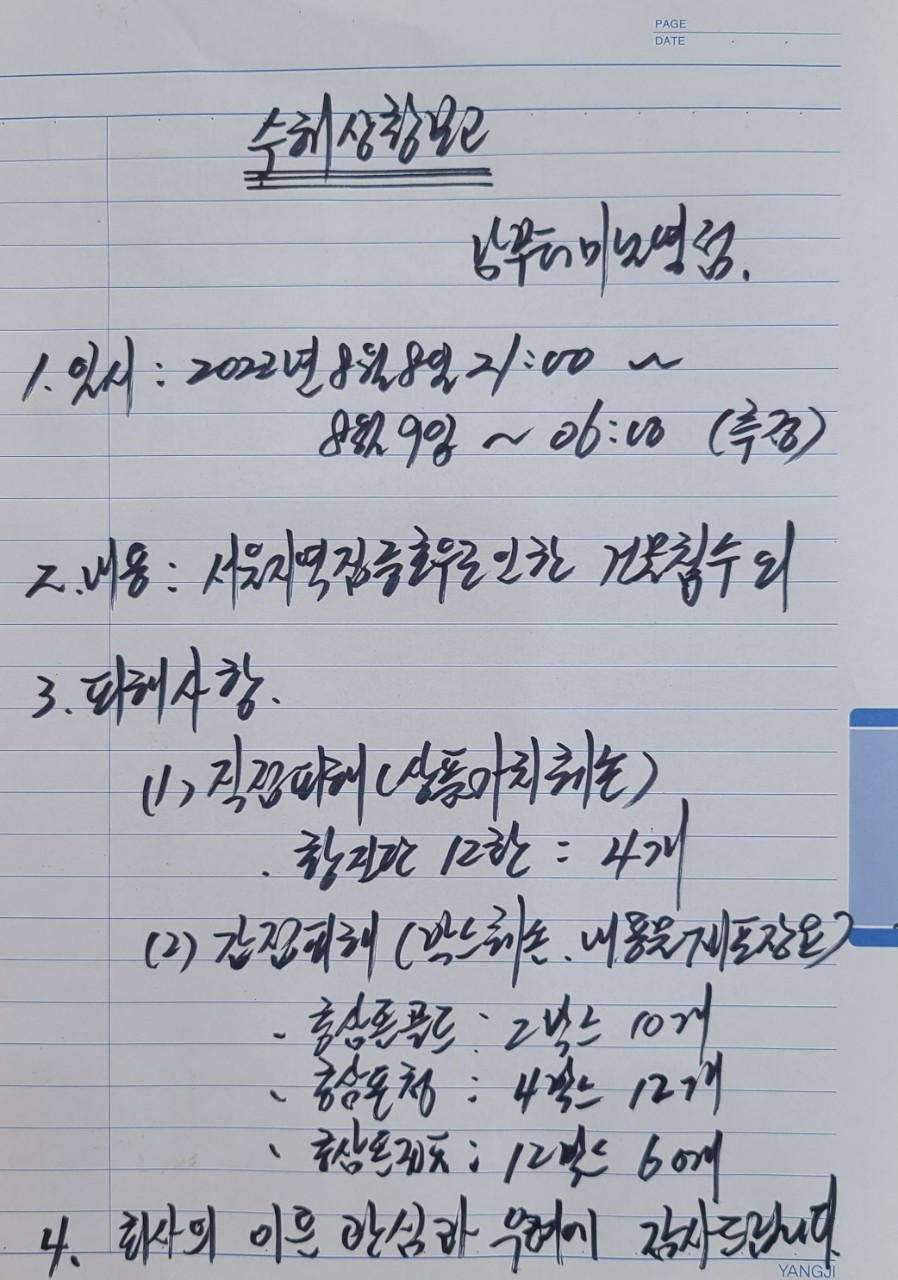 PAGE
DATE
수해상황보고
남부터미널역점.
1. 일시 : 2022년 8월 8일 21:00 ~
8월 9일 ~ 06:00 (추정)
2. 내용 : 서울지역집중호우로인한 건물침수 외
3. 피해사항.
(1) 직접피해 (상품가치훼손)
. 황진단 12환 : 4개
(2) 간접피해 (박스훼손. 내용물재포장요)
. 홍삼톤골드 : 2박스 10개
. 홍삼톤청 : 4박스 12개
. 홍삼톤 : 12박스 60개
4. 회사의 관심과 우려에 감사드립니다.
YANGJI